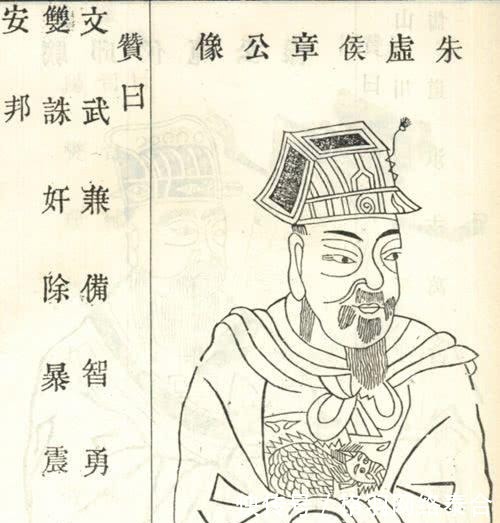 朱虛侯章公像
贊曰
文武兼備智勇
雙誅奸除暴震
安邦